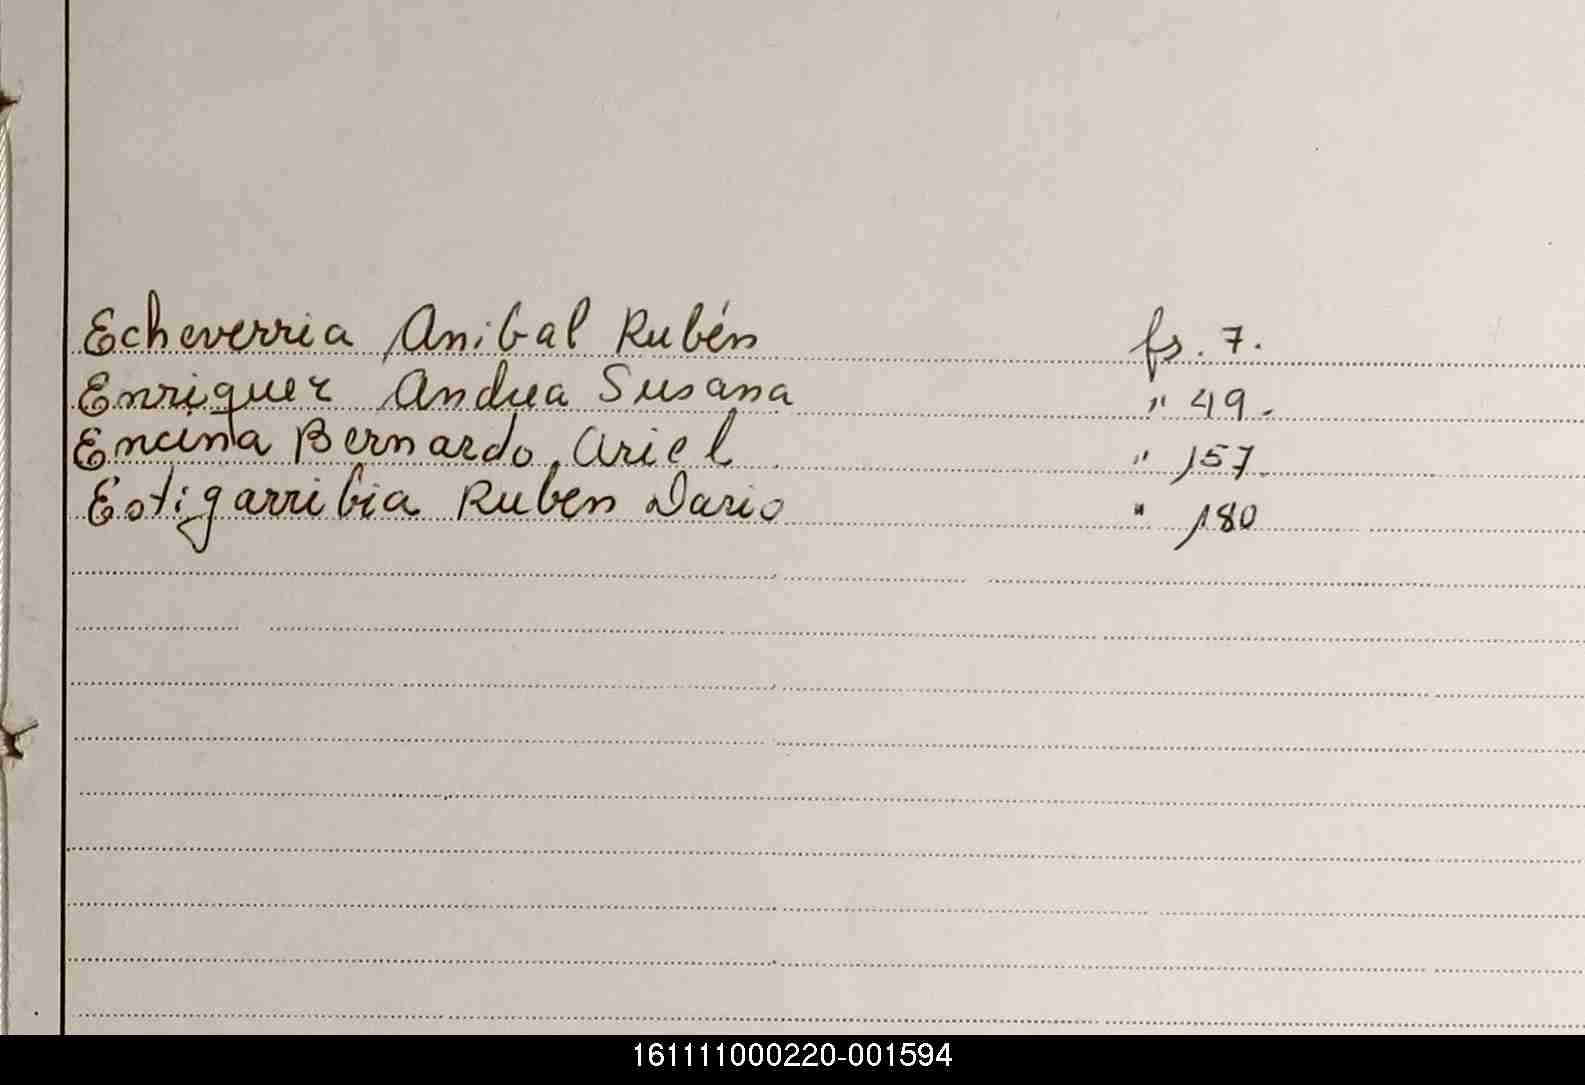 Echeverria Anibal Rubén fs. 7.
Enriquez Andrea Susana " 49.
Encina Bernardo Ariel " 157.
Estigarribia Ruben Dario " 180
161111000220-001594